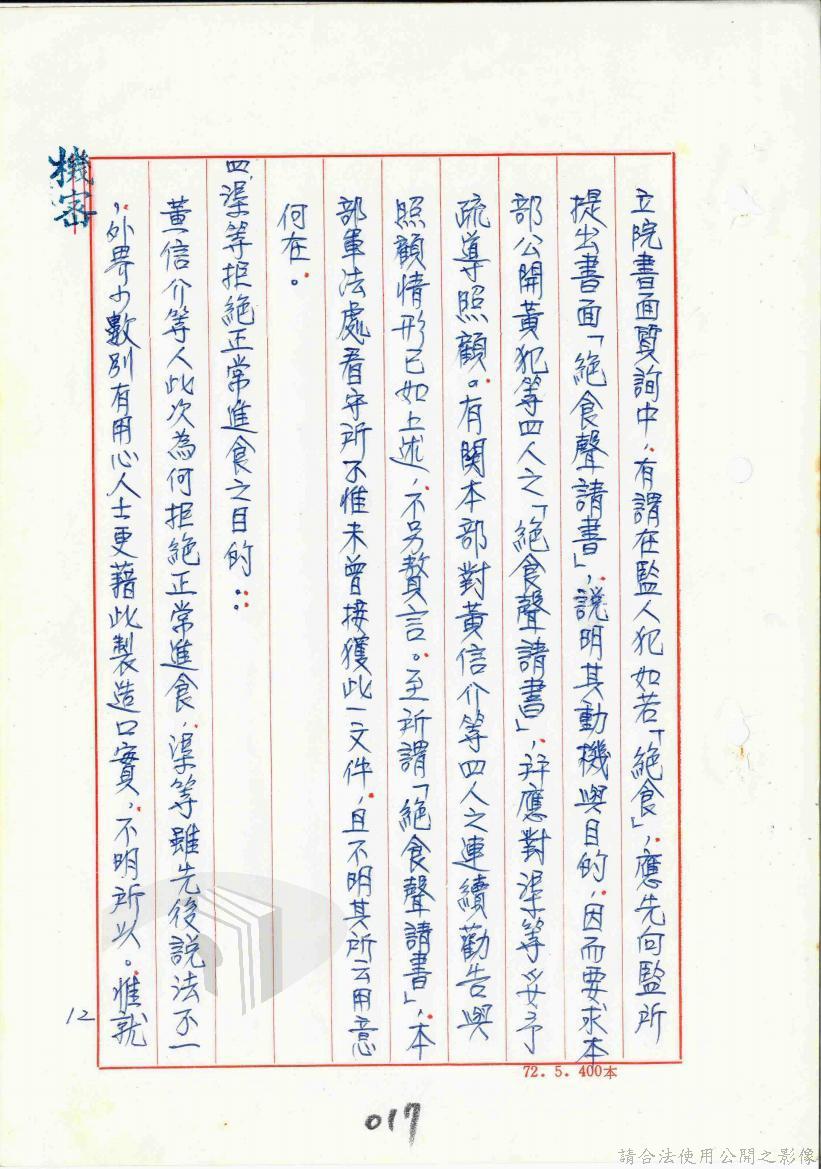 立院書面質詢中，有謂在監人犯如若「絕食」，應先向監所
提出書面「絕食聲請書」，說明其動機與目的，因而要求本
部公開黃犯等四人之「絕食聲請書」，并應對渠等妥予
疏導照顧。有関本部對黃信介等四人之連續勸告與
照顧情形已如上述，不另贅言。至所謂「絕食聲請書」，本
部軍法處看守所不惟未曾接獲此一文件，且不明其所云用意
何在。
四、渠等拒絕正常進食之目的：
黃信介等人此次為何拒絕正常進食，渠等雖先後說法不一
，外界少數別有用心人士更藉此製造口實，不明所以。惟就
機密
12
72.5.400本
017
請合法使用公開之影像